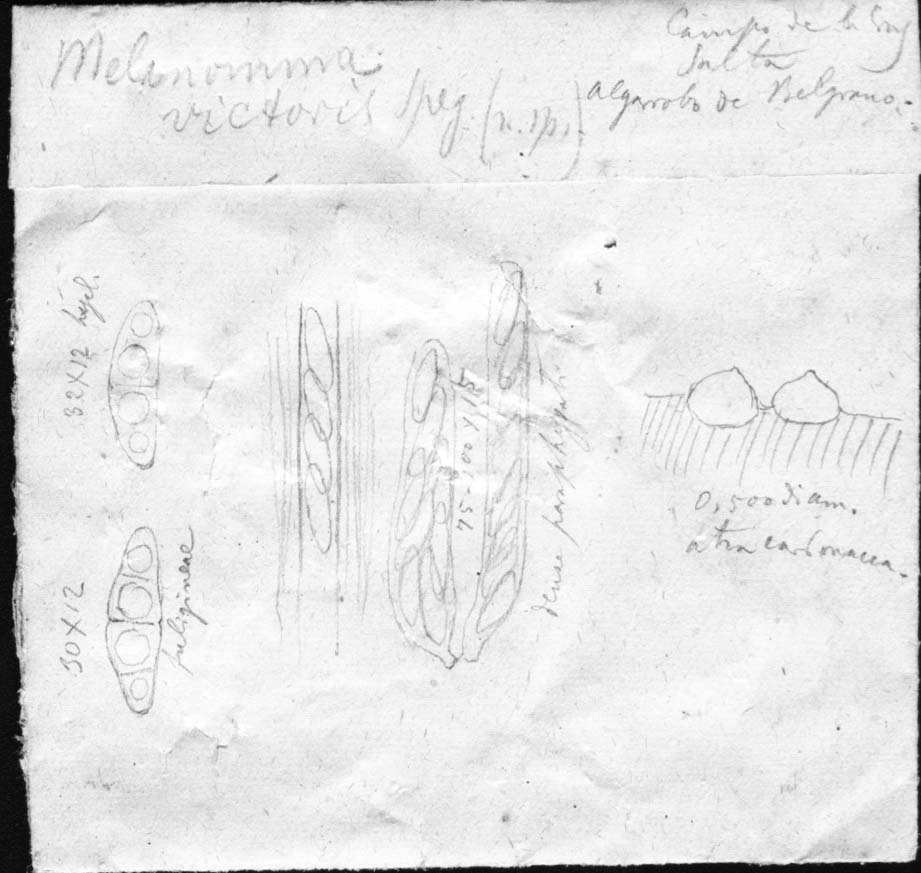 Melanomma
victoris Speg. (n. sp.)
Campo de la Cruz
Salta
algarrobo de Belgrano.
32 X 12 hyal.
30 X 12
fuligineae
75-100 X 18
dense paraphysati
0,500 diam.
atra carbonacea.